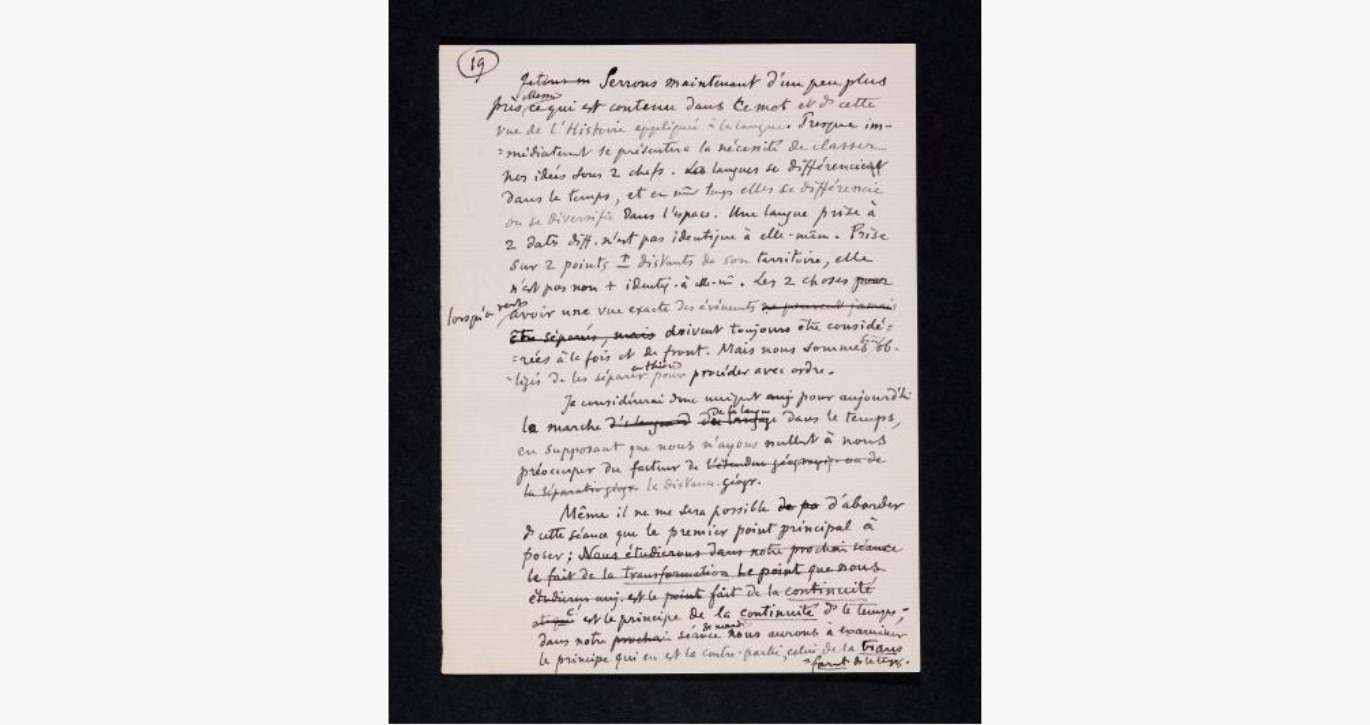 19
Jetons un Serrons maintenant d'un peu plus
près, Messieurs, ce qui est contenu dans ce mot et ds cette
vue de l'Histoire appliquée à la langue. Presque im-
=médiatement se présentera la nécessité de classer
nos idées sous 2 chefs. Les langues se différencient
dans le temps, et en mm temps elles se différencie
ou se diversifie dans l'espace. Une langue prise à
2 dates diff. n'est pas identique à elle-mêm. Prise
sur 2 points distants de son territoire, elle
n'est pas non + identiq. à elle-m̄. Les 2 choses pour
lorsqu'on veut avoir une vue exacte des événements ne peuvent jamais
être séparés, mais doivent toujours être considé=
=rées à la fois et de front. Mais nous sommes bien ob-
-ligés de les séparer en théorie pour procéder avec ordre.
Je considérerai donc uniqunt auj pour aujourd'hi
la marche de la langue dans le temps,
en supposant que nous n'ayons nullnt à nous
préoccuper du facteur de l'étendue géograph. ou de
la séparatio géogr. la distance géogr.
Même il ne me sera possible de po d'aborder
ds cette séance que le premier point principal à
poser ; Nous étudierons dans notre prochain séance
le fait de la transformation Le point que nous
étudierons auj. est le point fait de la continuité
c' est le principe de la continuité ds le temps ;
dans notre prochain séance de mardi nous aurons à examiner
le principe qui en est la contre-partie, celui de la trans
=formt ds le temps.